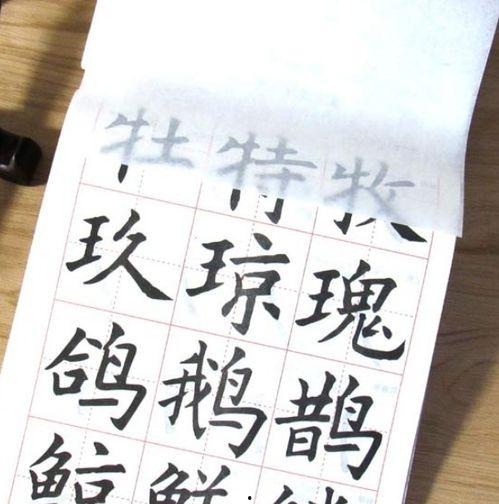 牡特牧
玖琼瑰
鸽鹅鹊
鲸鲜